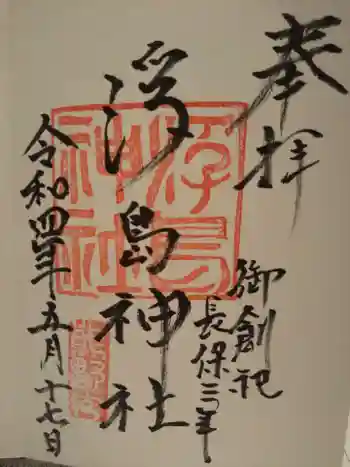 奉拝
御創祀
長保三年
浮島神社
令和四年五月十七日
浮島神社